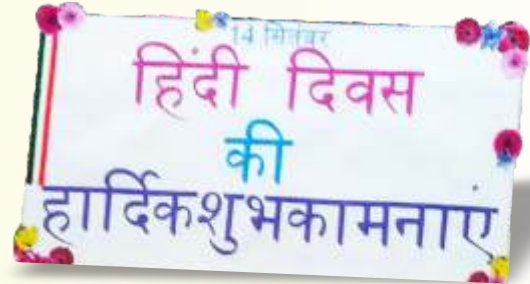 14 सितंबर
हिंदी दिवस
की
हार्दिकशुभकामनाएं